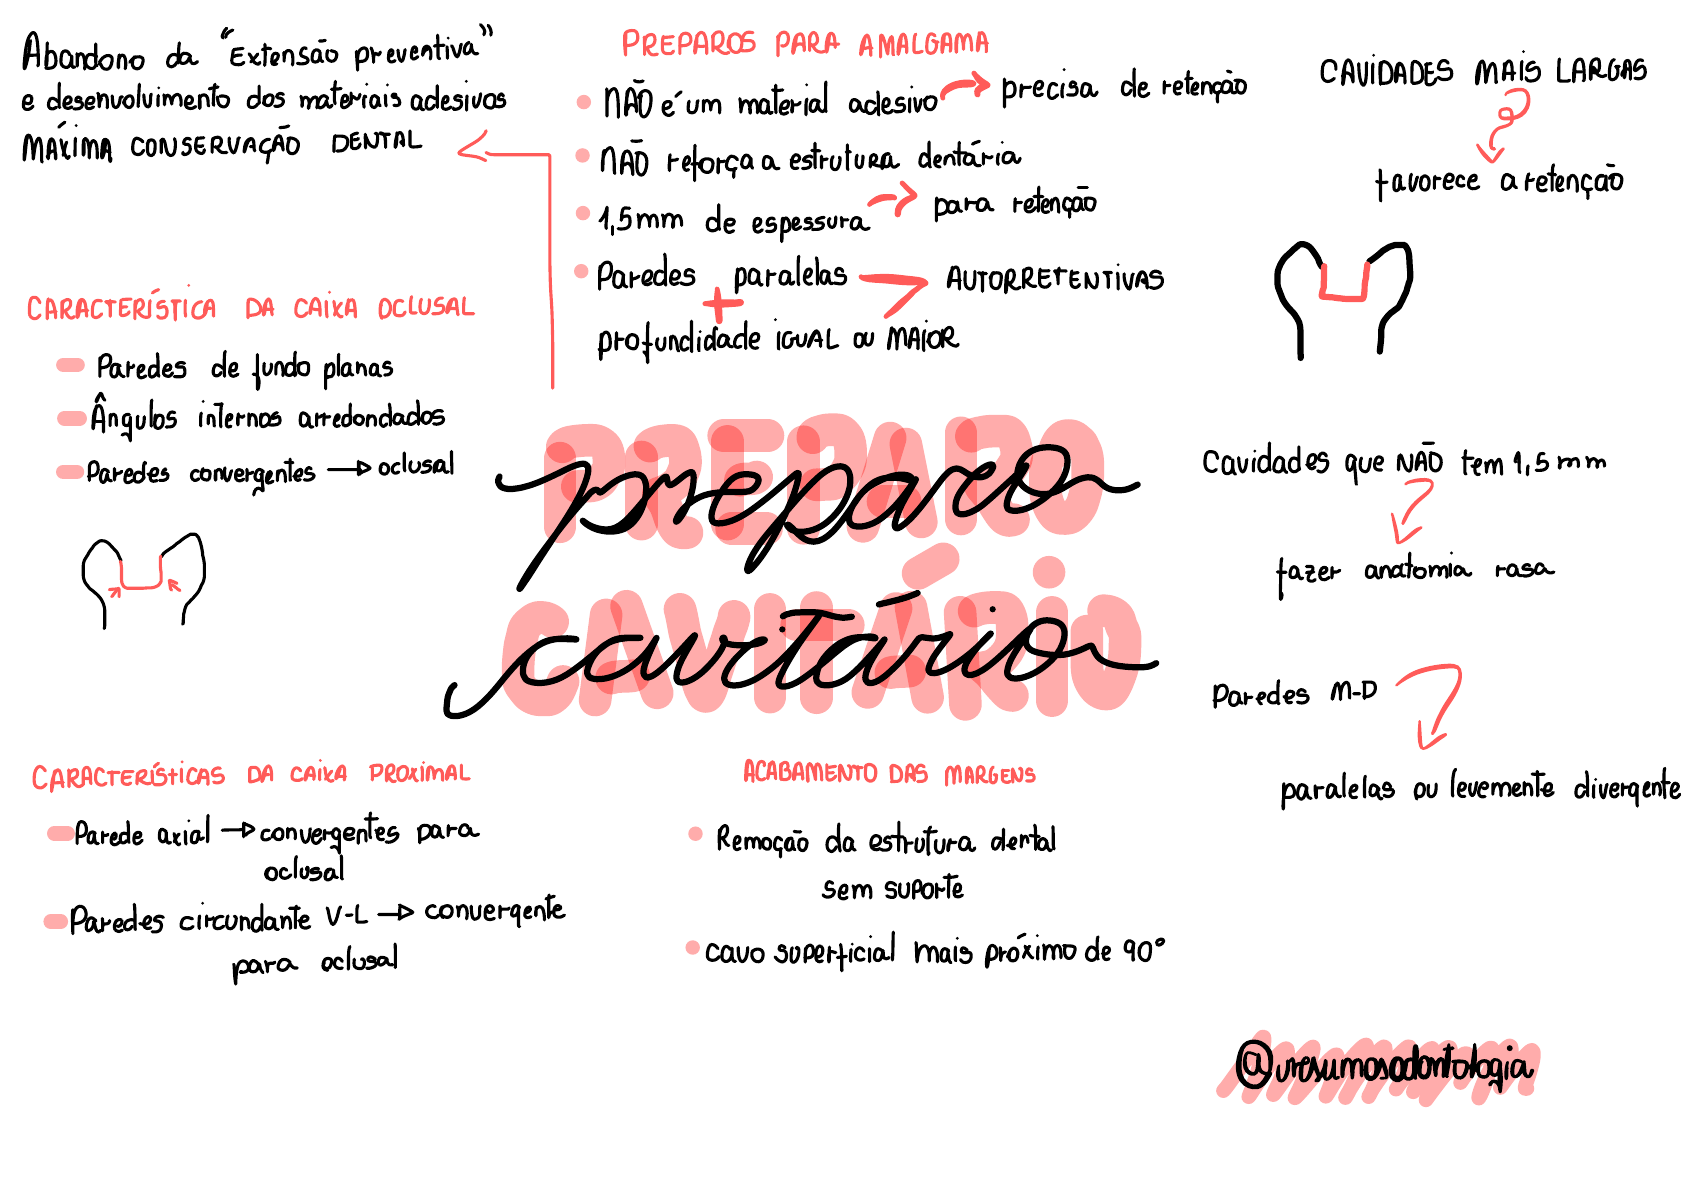 Abandono da "Extensão preventiva"
e desenvolvimento dos materiais adesivos
MÁXIMA CONSERVAÇÃO DENTAL
PREPAROS PARA AMALGAMA
NÃO é um material adesivo → precisa de retenção
NÃO reforça a estrutura dentária
1,5mm de espessura → para retenção
Paredes paralelas AUTORRETENTIVAS
+
profundidade IGUAL ou MAIOR
CAVIDADES MAIS LARGAS
favorece a retenção
CARACTERÍSTICA DA CAIXA OCLUSAL
Paredes de fundo planas
Ângulos internos arredondados
Paredes convergentes → oclusal
PREPARO
preparo
CAVITÁRIO
cavitário
Cavidades que NÃO tem 1,5mm
fazer anatomia rasa
Paredes M-D
paralelas ou levemente divergente
CARACTERÍSTICAS DA CAIXA PROXIMAL
Parede axial → convergentes para
oclusal
Paredes circundante V-L → convergente
para oclusal
ACABAMENTO DAS MARGENS
Remoção da estrutura dental
sem suporte
cavo superficial mais próximo de 90°
@vresumosodontologia